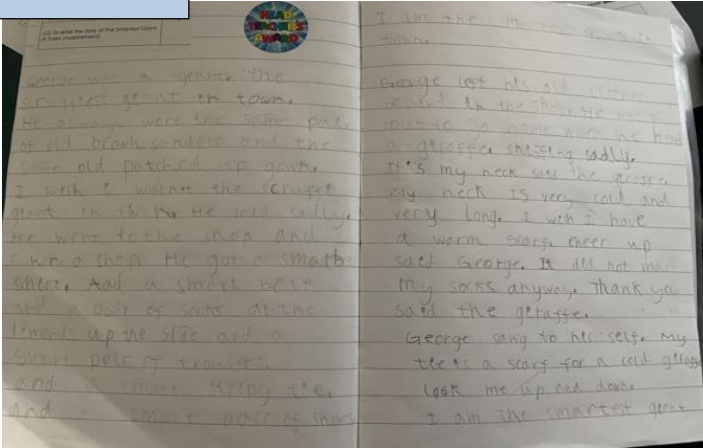 LO: To retell the story of The Smartest Giant in Town (Assessment)
HEAD TEACHERS AWARD
George was a geant. the
scruffiest geant en town.
He always wore the same pair
of old brown sandals and the
same old patched up gown.
I wesh I wasnt the scruffet
geant en town. He saed sadly.
He went to the shop and
a shop He got a smart
shert. And a smart belt
and a pair of socks at the
up the side and a
smart peir of trousers.
and a smart stripy tie.
and a smart peir of shoes
I am the geant in
town.
George left his old clothes
behind en the shop. He was a
bout to go home when he head
a geraffe. sadly.
It's my neck say the geraffe.
my neck IS very cold and
very long. I weh I have
a worm scarf. cheer up
saed George. It did not mach
my socks anyway. thank you
saed the geraffe.
George sang to hes self. My
tee es a scarf for a cold geraffe
look me up and down.
I am the smartest geant